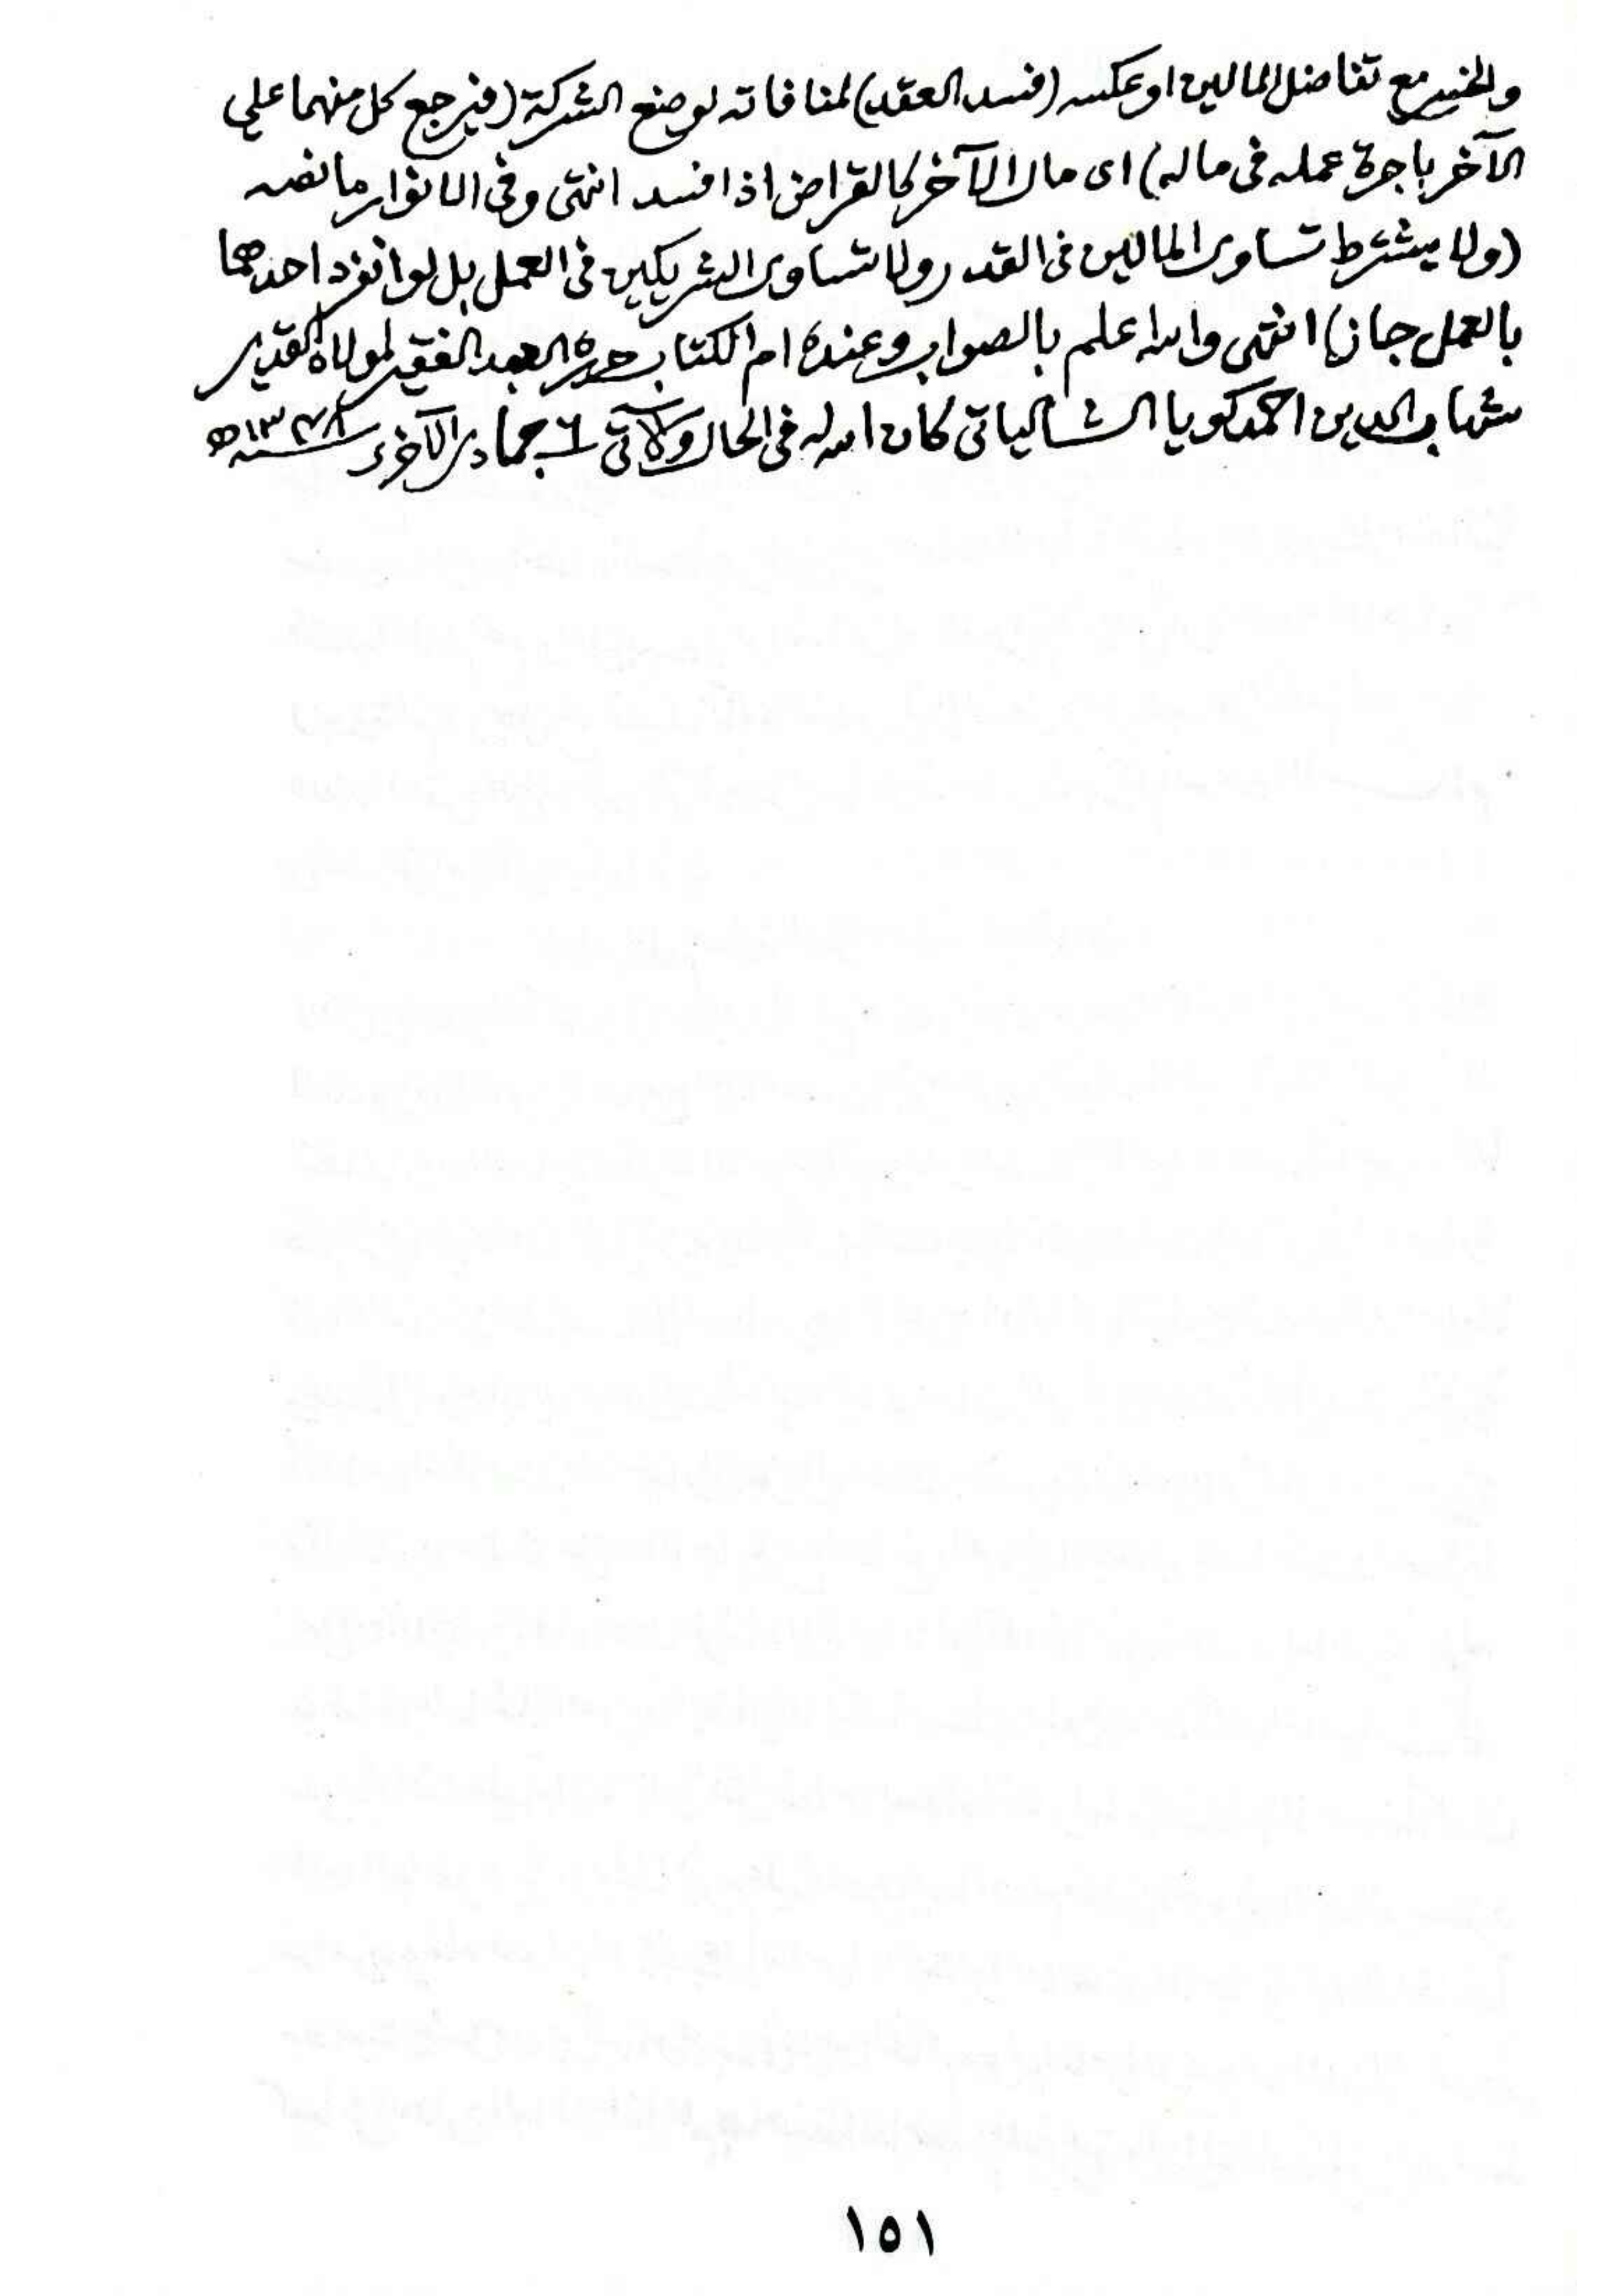 والخسر مع تفاضل المالين او عكسه (فسد العقد) لمنافاته لوضع الشركة (فيرجع كل منهما علي
الآخر باجرة عمله في ماله) اى مال الآخر كالقراض اذا فسد انتهى وفي الانوار ما نصه
(ولا يشترط تساوى المالين فى القدر ولا تساوى الشريكين فى العمل بل لو انفرد احدهما
بالعمل جاز) انتهى والله اعلم بالصواب وعنده ام الكتاب حرره العبد الفقير لمولاه القدير
شهاب الدين احمد كويا الشالياتى كان الله له فى الحال والآتى ٦ جمادى الآخرى سنة ١٣٤٨ه
١٥١